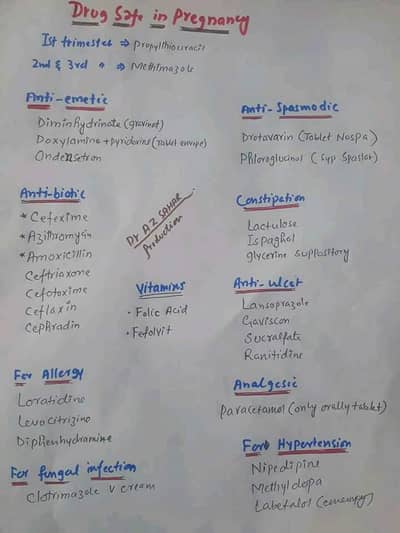 Drug Safe in Pregnancy
Ist trimester ⇒ Propylthiouracil
2nd & 3rd " ⇒ Methimazole
Anti-emetic
Diminhydrinate (gravinet)
Doxylamine + pyridoxins (tablet envepe)
Ondensetron
Anti-biotic
* Cefexime
* Azithromycin
* Amoxicillin
Ceftriaxone
Cefotoxime
Ceflaxin
Cephradin
For Allergy
Loratidine
Levocitrizine
Diphenhydramine
For fungal infection
Clotrimazole V cream
Dr AZ SAHAR
Production
Vitamins
• Folic Acid
• Fefolvit
Anti-Spasmodic
Drotavarin (Tablet NoSpa)
Phloroglucinol (Syp Spaslor)
Constipation
Lactulose
Ispaghol
glycerine Suppository
Anti-ulcer
Lansoprazole
Gaviscon
Sucralfate
Ranitidine
Analgesic
Paracetamol (only orally tablet)
For Hypertension
Nipedipine
Methyldopa
Labetalos